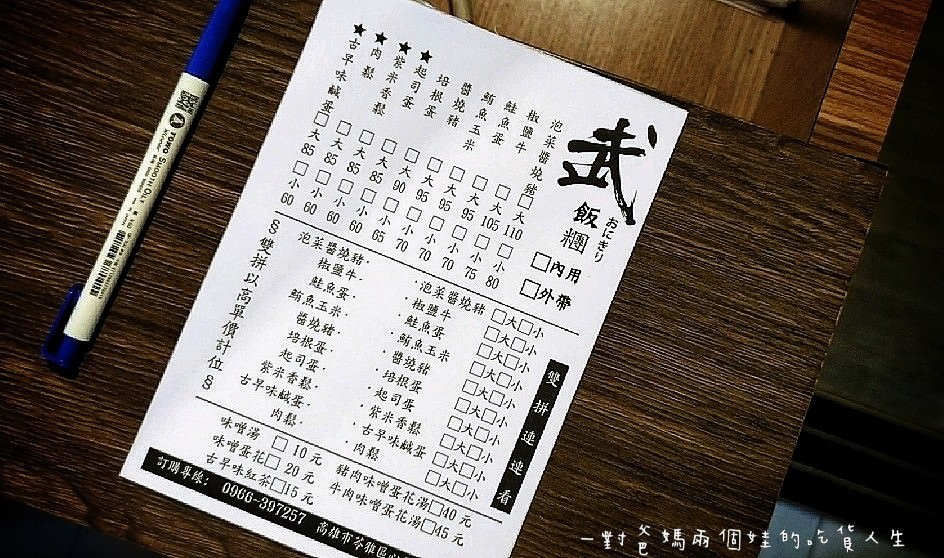 武
飯糰
おにぎり
□內用
□外帶
泡菜醬燒豬 □大110 □小80
椒鹽牛 □大105 □小75
鮭魚蛋 □大95 □小70
鮪魚玉米 □大95 □小70
醬燒豬 □大95 □小70
培根蛋 □大90 □小65
★起司蛋 □大85 □小60
★紫米香鬆 □大85 □小60
★肉鬆 □大85 □小60
★古早味鹹蛋 □大85 □小60
雙拼連連看
泡菜醬燒豬· ·泡菜醬燒豬 □大□小
椒鹽牛· ·椒鹽牛 □大□小
鮭魚蛋· ·鮭魚蛋 □大□小
鮪魚玉米· ·鮪魚玉米 □大□小
醬燒豬· ·醬燒豬 □大□小
培根蛋· ·培根蛋 □大□小
起司蛋· ·起司蛋 □大□小
紫米香鬆· ·紫米香鬆 □大□小
古早味鹹蛋· ·古早味鹹蛋 □大□小
肉鬆· ·肉鬆 □大□小
§雙拼以高單價計位§
味噌湯 □10元
味噌蛋花□20元 豬肉味噌蛋花湯□40元
古早味紅茶□15元 牛肉味噌蛋花湯□45元
訂購專線: 0966-397257 高雄市苓雅區
一對爸媽兩個娃的吃貨人生